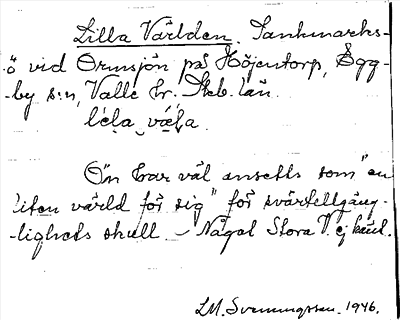 Lilla Världen. Sankmarks-
ö vid Ormsjön på Höjentorp, Ägg-
-by s:n, Valle hr. Skb. län.
Ön har väl ansetts som "en
liten värld för sig" för svårtillgäng-
-lighets skull. – Något Stora V. ej känt.
L.M. Svenungsson. 1946.